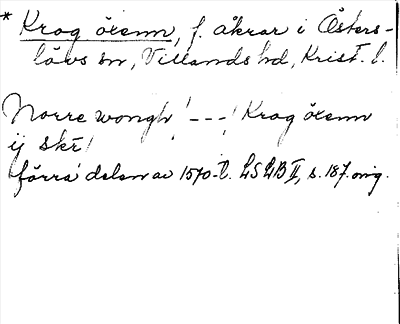 * Krog örenn, f. åkrar i Östers-
lövs sn, Villands hd, Krist. l.
Norre wongh! - - -! Krog örenn
ij skr!
förra delen av 1570-t. LSLB II, s. 187. orig.